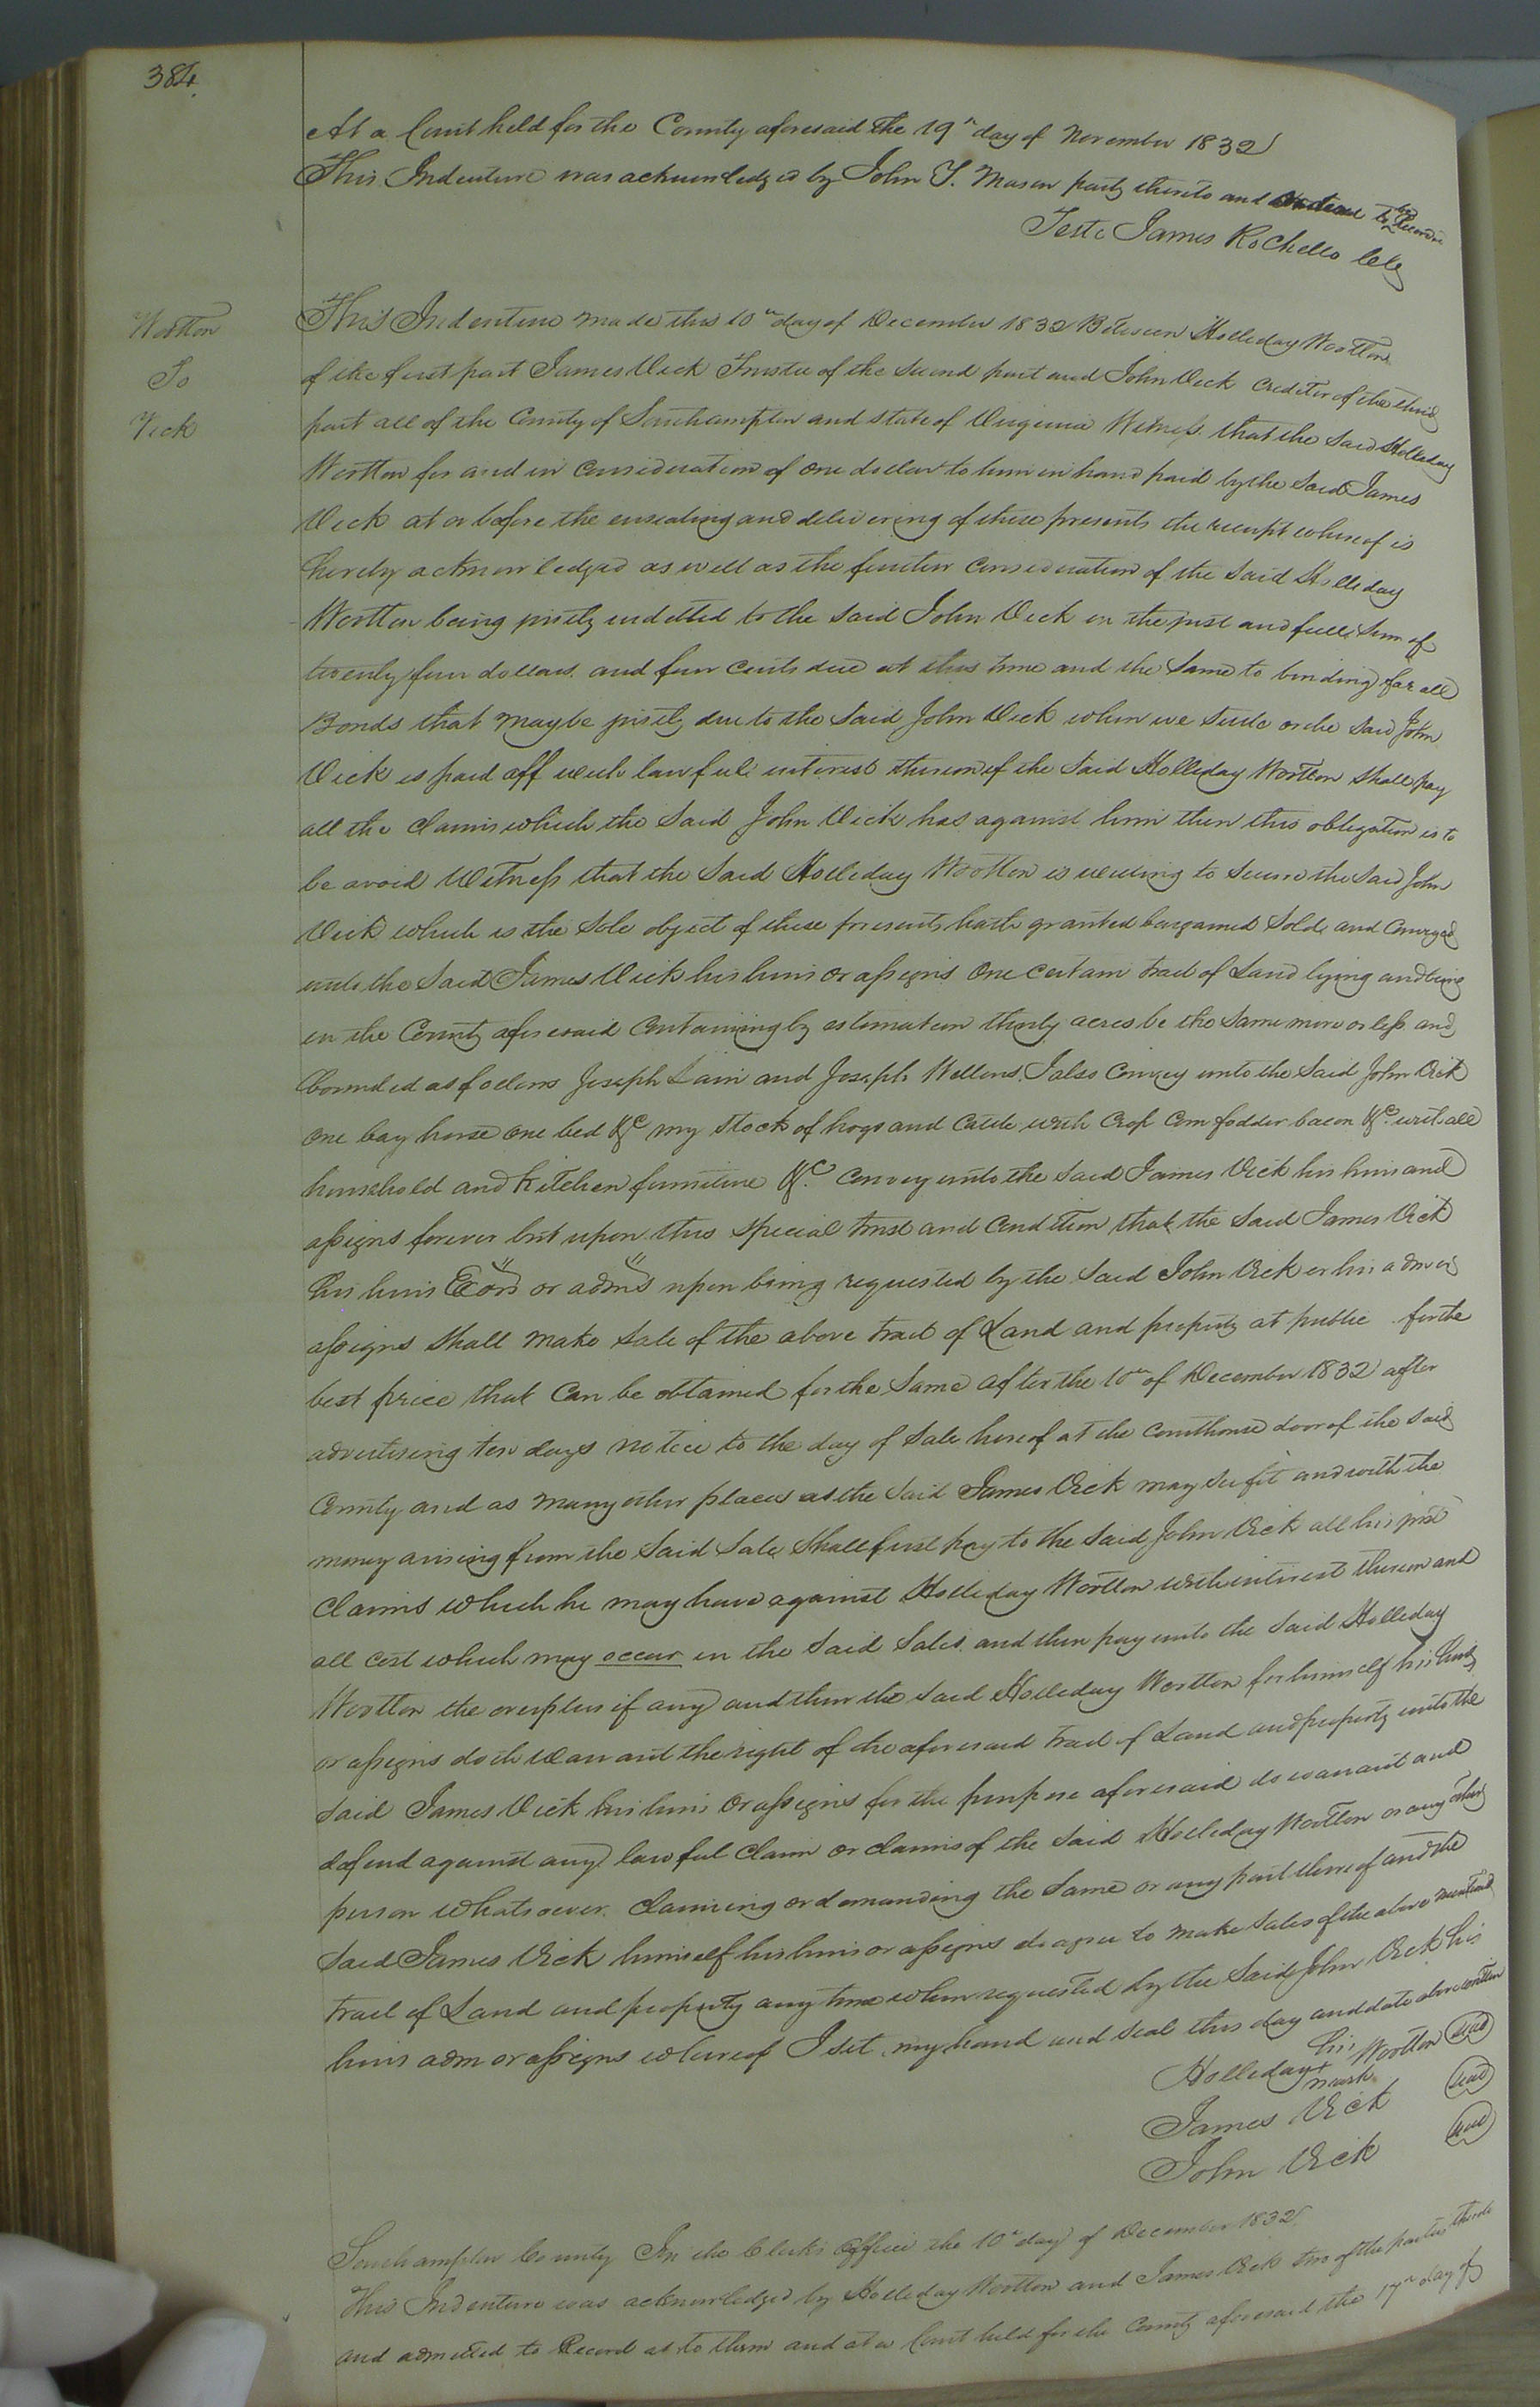 384.
At a Court held for the County aforesaid the 19th day of November 1832
This Indenture was acknowledged by John T. Mason party thereto and ordered to be Recorded
Teste James Rochelle Clk
Wootton
To
Vick
This Indenture made this 10th day of December 1832 Between Holleday Wootton
of the first part James Vick Trustee of the Second part and John Vick Creditor of the third
part all of the County of Southampton and state of Virginia Witness that the Said Holleday
Wootton for and in Consideration of one dollar to him in hand paid by the Said James
Vick at or before the ensealing and delivering of these presents the receipt whereof is
hereby acknowledged as well as the further Consideration of the Said Holleday
Wootton being justly indetted to the Said John Vick in the just and full Sum of
twenty four dollars and four cents due at this time and the Same to binding for all
Bonds that may be justly due to the Said John Vick when we Settle or the Said John
Vick is paid off with lawfull interest thereon if the Said Holleday Wootton Shall pay
all the Claims which the Said John Vick has against him then this obligation is to
be avoid Witness that the Said Holleday Wootton is willing to Secure the Said John
Vick which is the Sole object of these presents hath granted bargained Sold and Conveyed
unto the Said James Vick his heirs or assigns One Certain tract of Land lying and being
in the County aforesaid Containing by estimation thirty acres be the Same more or less and
bounded as follows Joseph Lain and Joseph Wellons. I also Convey unto the Said John Vick
one bay horse one bed &c my Stock of hogs and Cattle with Crop Corn fodder bacon &c. with all
household and Kitchen furniture &c. Convey unto the Said James Vick his heirs and
assigns forever but upon this Special trust and Condition that the Said James Vick
his heirs Exors or adms upon being requested by the Said John Vick or his adm or
assigns Shall make Sale of the above tract of Land and property at public for the
best price that Can be obtained for the Same after the 10th of December 1832 after
advertising ten days notice to the day of Sale hereof at the Courthouse door of the Said
County and as many other places as the Said James Vick may See fit and with the
money arising from the Said Sale Shall first pay to the Said John Vick all his just
Claims which he may have against Holleday Wootton with interest thereon and
all Cost which may occur in the Said Sales and then pay unto the Said Holleday
Wootton the overplus if any and then the Said Holleday Wootton for himself his heirs
or assigns doth warrant the right of the aforesaid tract of Land and property unto the
Said James Vick his heirs or assigns for the purpose aforesaid do warrant and
defend against any lawful Claim or Claims of the Said Holleday Wootton or any other
person whatsoever Claiming or demanding the Same or any part thereof and the
Said James Vick himself his heirs or assigns do agree to make Sales of the above mentioned
tract of Land and property any time when requested by the Said John Vick his
heirs adm or assigns whereof I Set my hand and Seal this day and date above written
his
Holleday + Wootton Seal
mark
James Vick Seal
John Vick Seal
Southampton County In the Clerks Office the 10th day of December 1832
This Indenture was acknowledged by Holleday Wootton and James Vick two of the parties thereto
and admitted to Record as to them and at a Court held for the County aforesaid the 17th day of